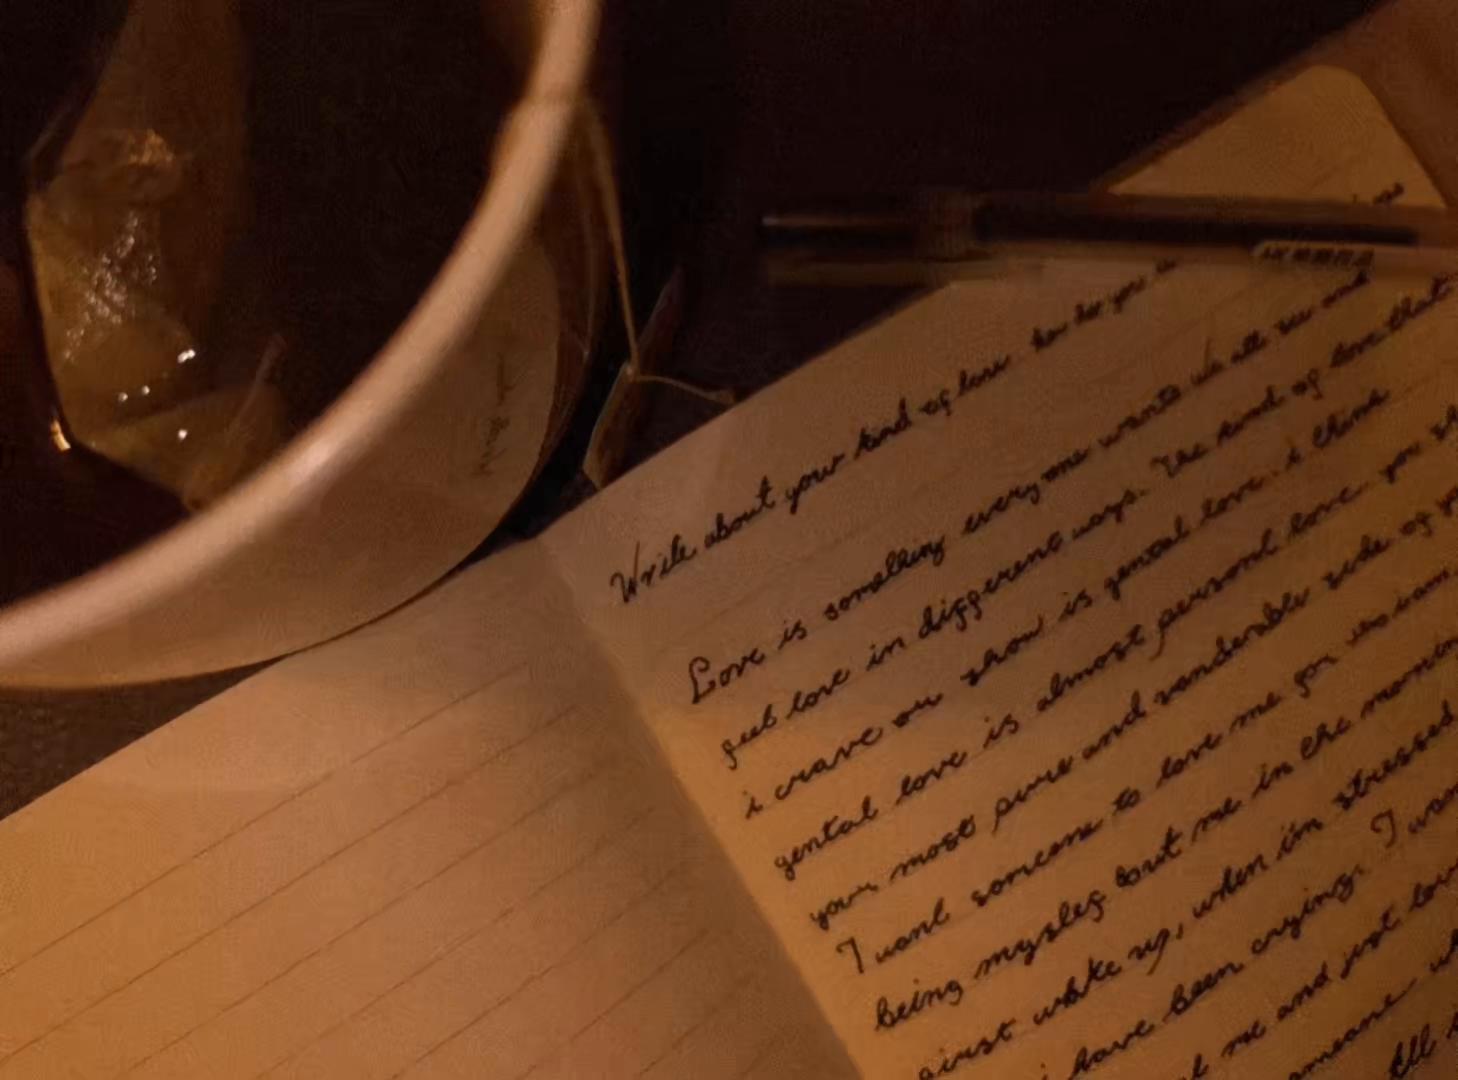 Write about your kind of love. how do you
Love is something everyone wants we all see and
feel love in different ways. The kind of love that
i crave or show is gental love. i think
gental love is almost personal love. you sh
your most pure and vunderable side of yo
I want someone to love me for who i am
being myself but me in the mornin
first wake up, when i'm stressed
i have been crying. I wan
me and just lov
someone w